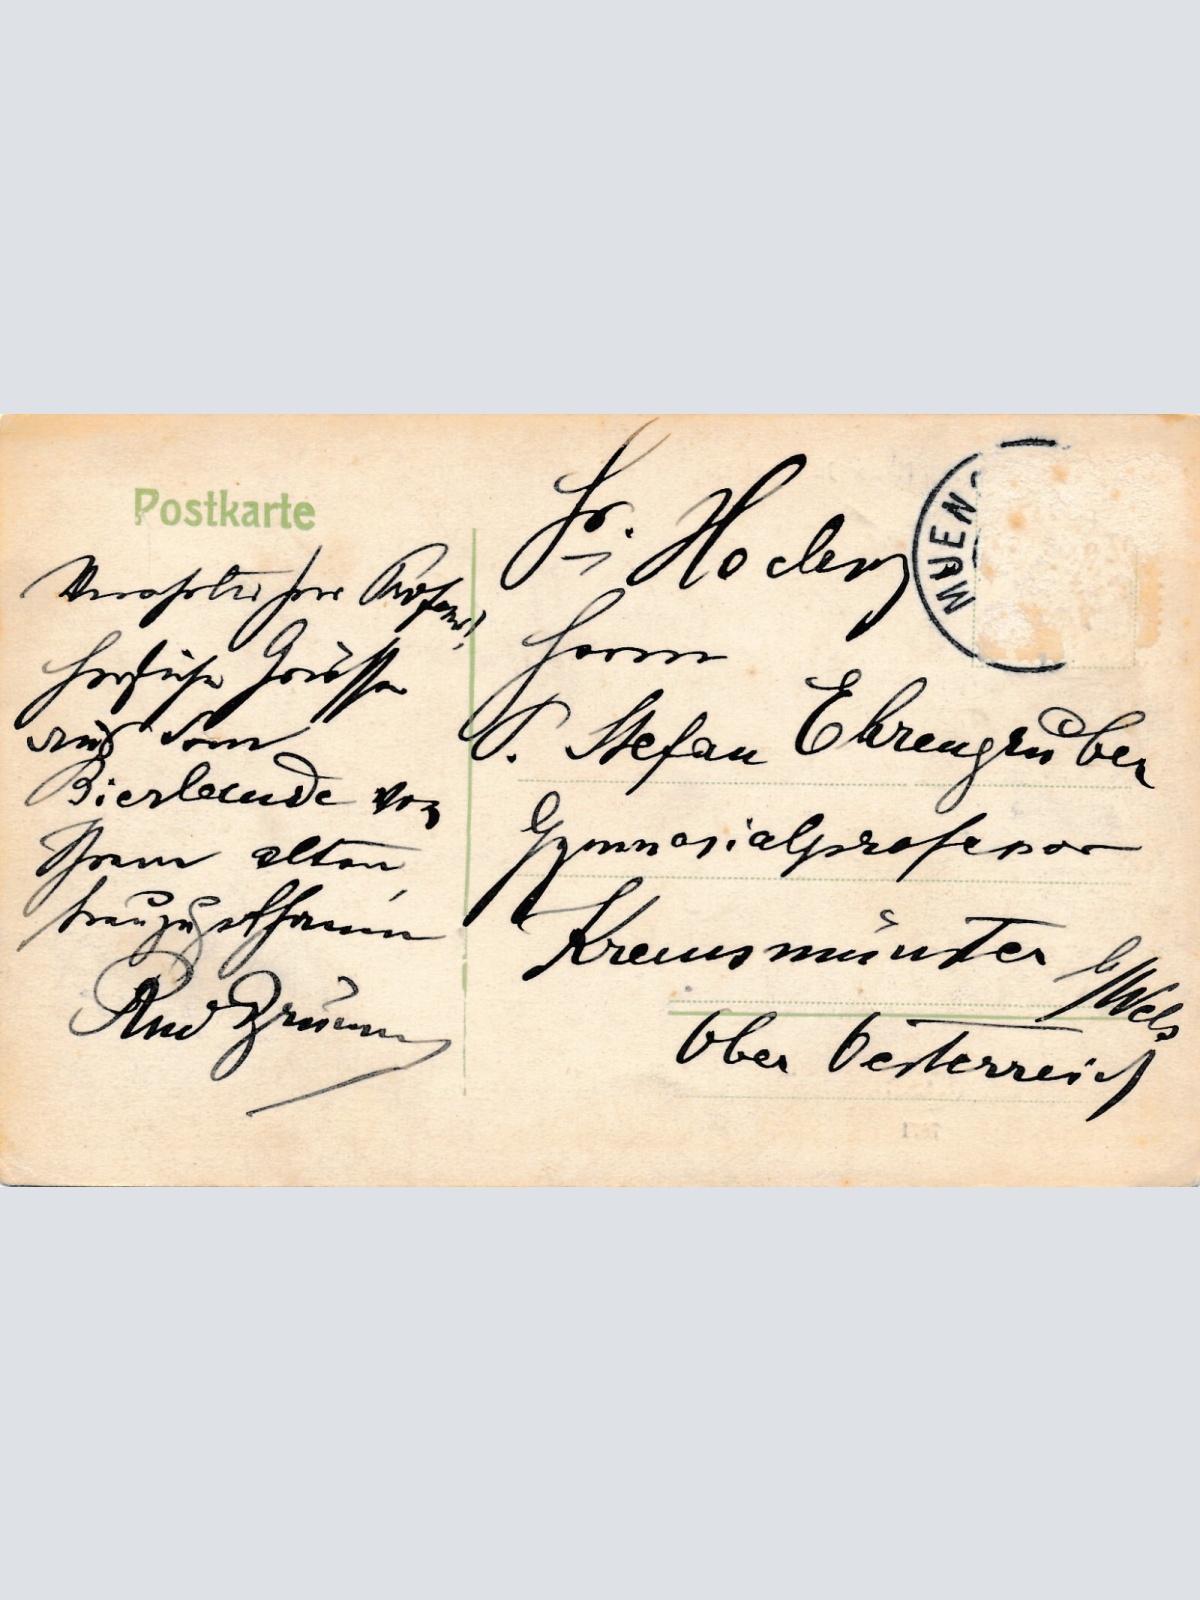 Postkarte
Verehrter Herr Professor!
Herzliche Grüsse
aus dem
Bierlande von
Ihrem alten
Rud Brunn
MUEN
Sr. Hochw
Herrn
P. Stefan Ehrengruber
Gymnasialprofessor
Kremsmünster
b/Wels
Ober Oesterreich